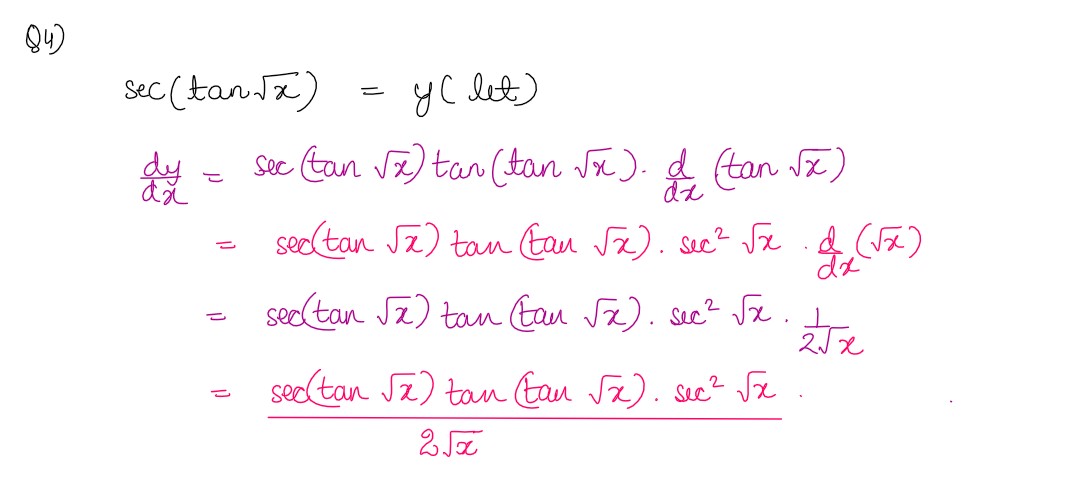 Q4)
sec(tan√x) = y( let)
dy/dx = sec(tan √x) tan(tan √x). d/dx (tan √x)
= sec(tan √x) tan(tan √x). sec² √x . d/dx (√x)
= sec(tan √x) tan(tan √x). sec² √x . 1/2√x
= sec(tan √x) tan(tan √x). sec² √x .
2√x